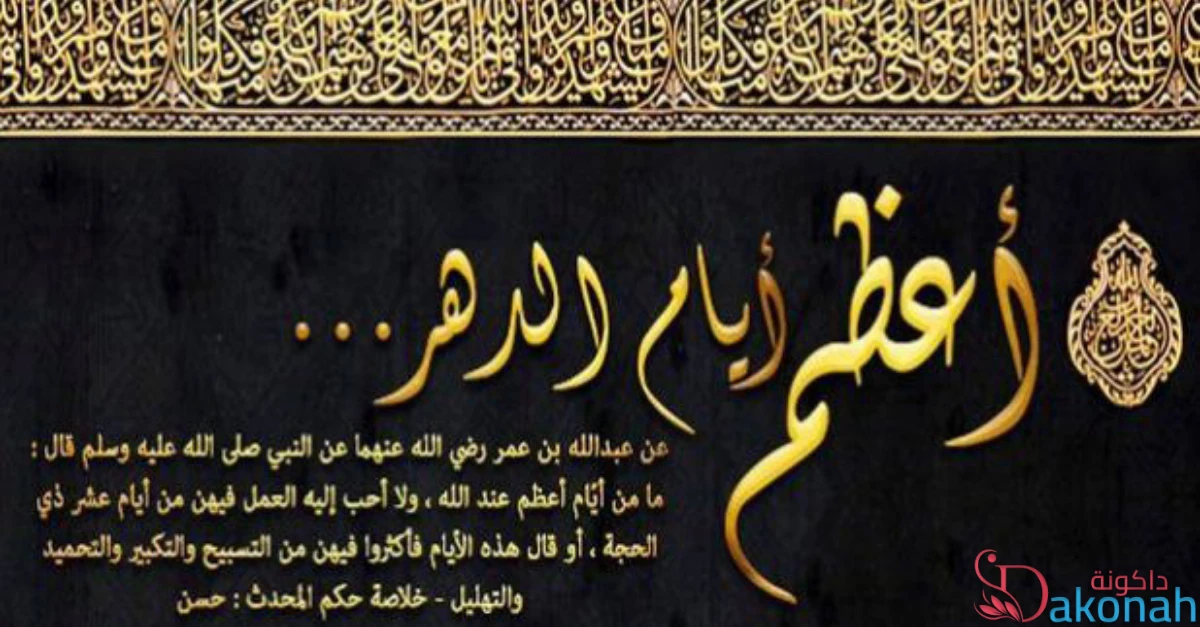 أعظم أيام الدهر...
عن عبدالله بن عمر رضي الله عنهما عن النبي صلى الله عليه وسلم قال :
ما من أيّام أعظم عند الله ، ولا أحب إليه العمل فيهن من أيام عشر ذي
الحجة ، أو قال هذه الأيام فأكثروا فيهن من التسبيح والتكبير والتحميد
والتهليل - خلاصة حكم المحدث : حسن
داكونة
Dakonah